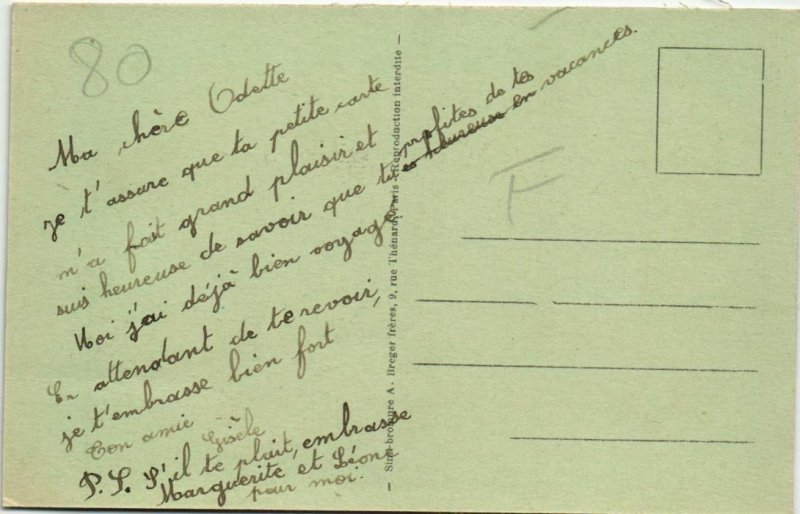 80
Ma chère Odette
je t'assure que ta petite carte
m'a fait grand plaisir et
suis heureuse de savoir que tu profites de tes
es heureuse en vacances.
Moi j'ai déjà bien voyagé
En attendant de te revoir,
je t'embrasse bien fort
Ton amie
Gisèle
P.S. S'il te plait, embrasse
Marguerite et Léone
pour moi.
— Simi-bromure A. Breger frères, 9, rue Thénard, Paris (Reproduction interdite) —
F